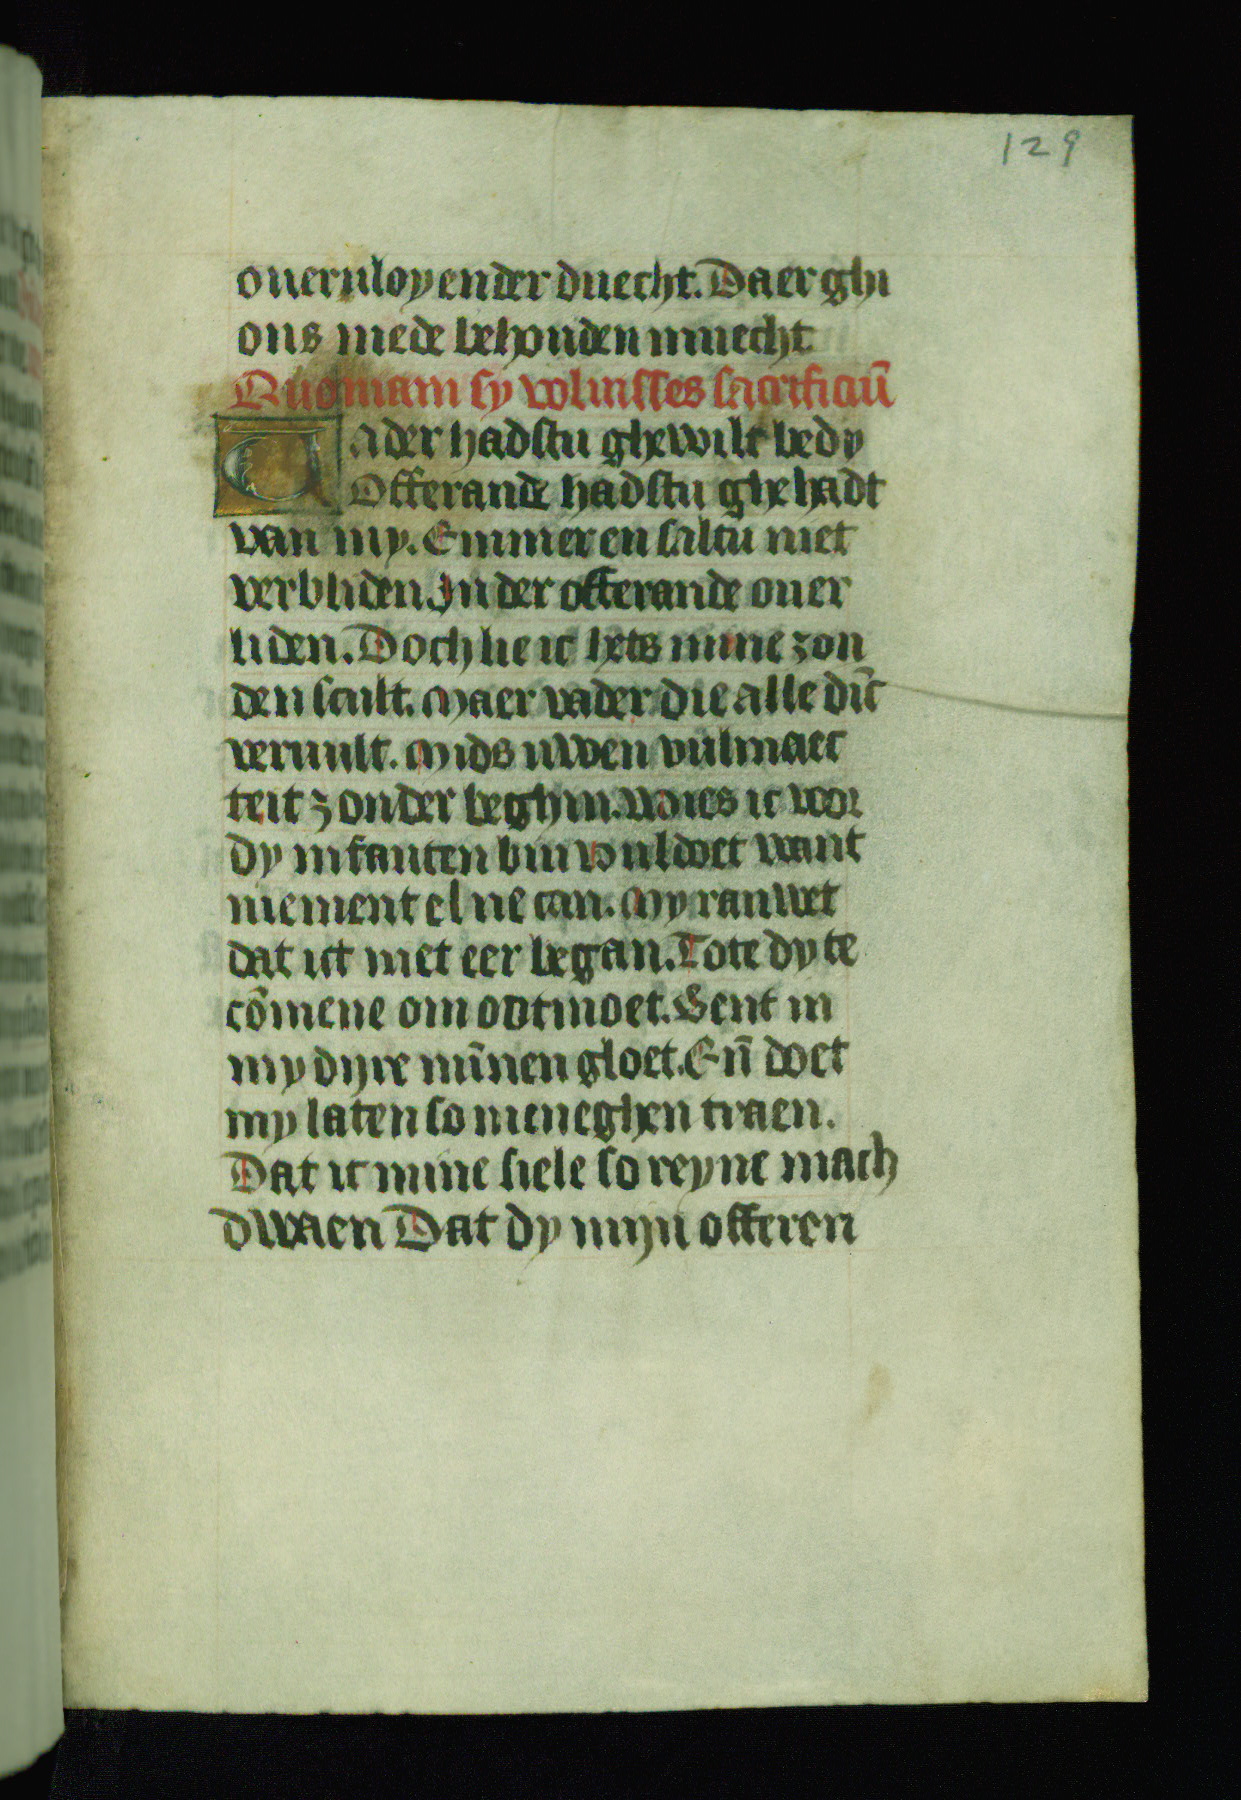 129
ouervloyender duecht. Daer ghi
ons mede behouden muecht
Quoniam sy voluisses sacrificiū
Uader hadstu ghewilt bedy
Offerande hadstu ghehadt
van my. Emmer en saltu niet
verbliden. In der offerande ouer
liden. Doch lie ic hets mine zon
den scult. Maer vader die alle dīc
veruult. Mids uwen vulmaec
teit zonder beghin. wies ic voor
dy infanten bin vuldoet want
niement el ne can. My rauwet
dat ict niet eer began. Tote dy te
cōmene om ootmoet. Sent in
my dyre mīnen gloet. Eñ doet
my laten so meneghen traen.
Dat ic mine siele so reyne mach
dwaen Dat dy mijn offeren